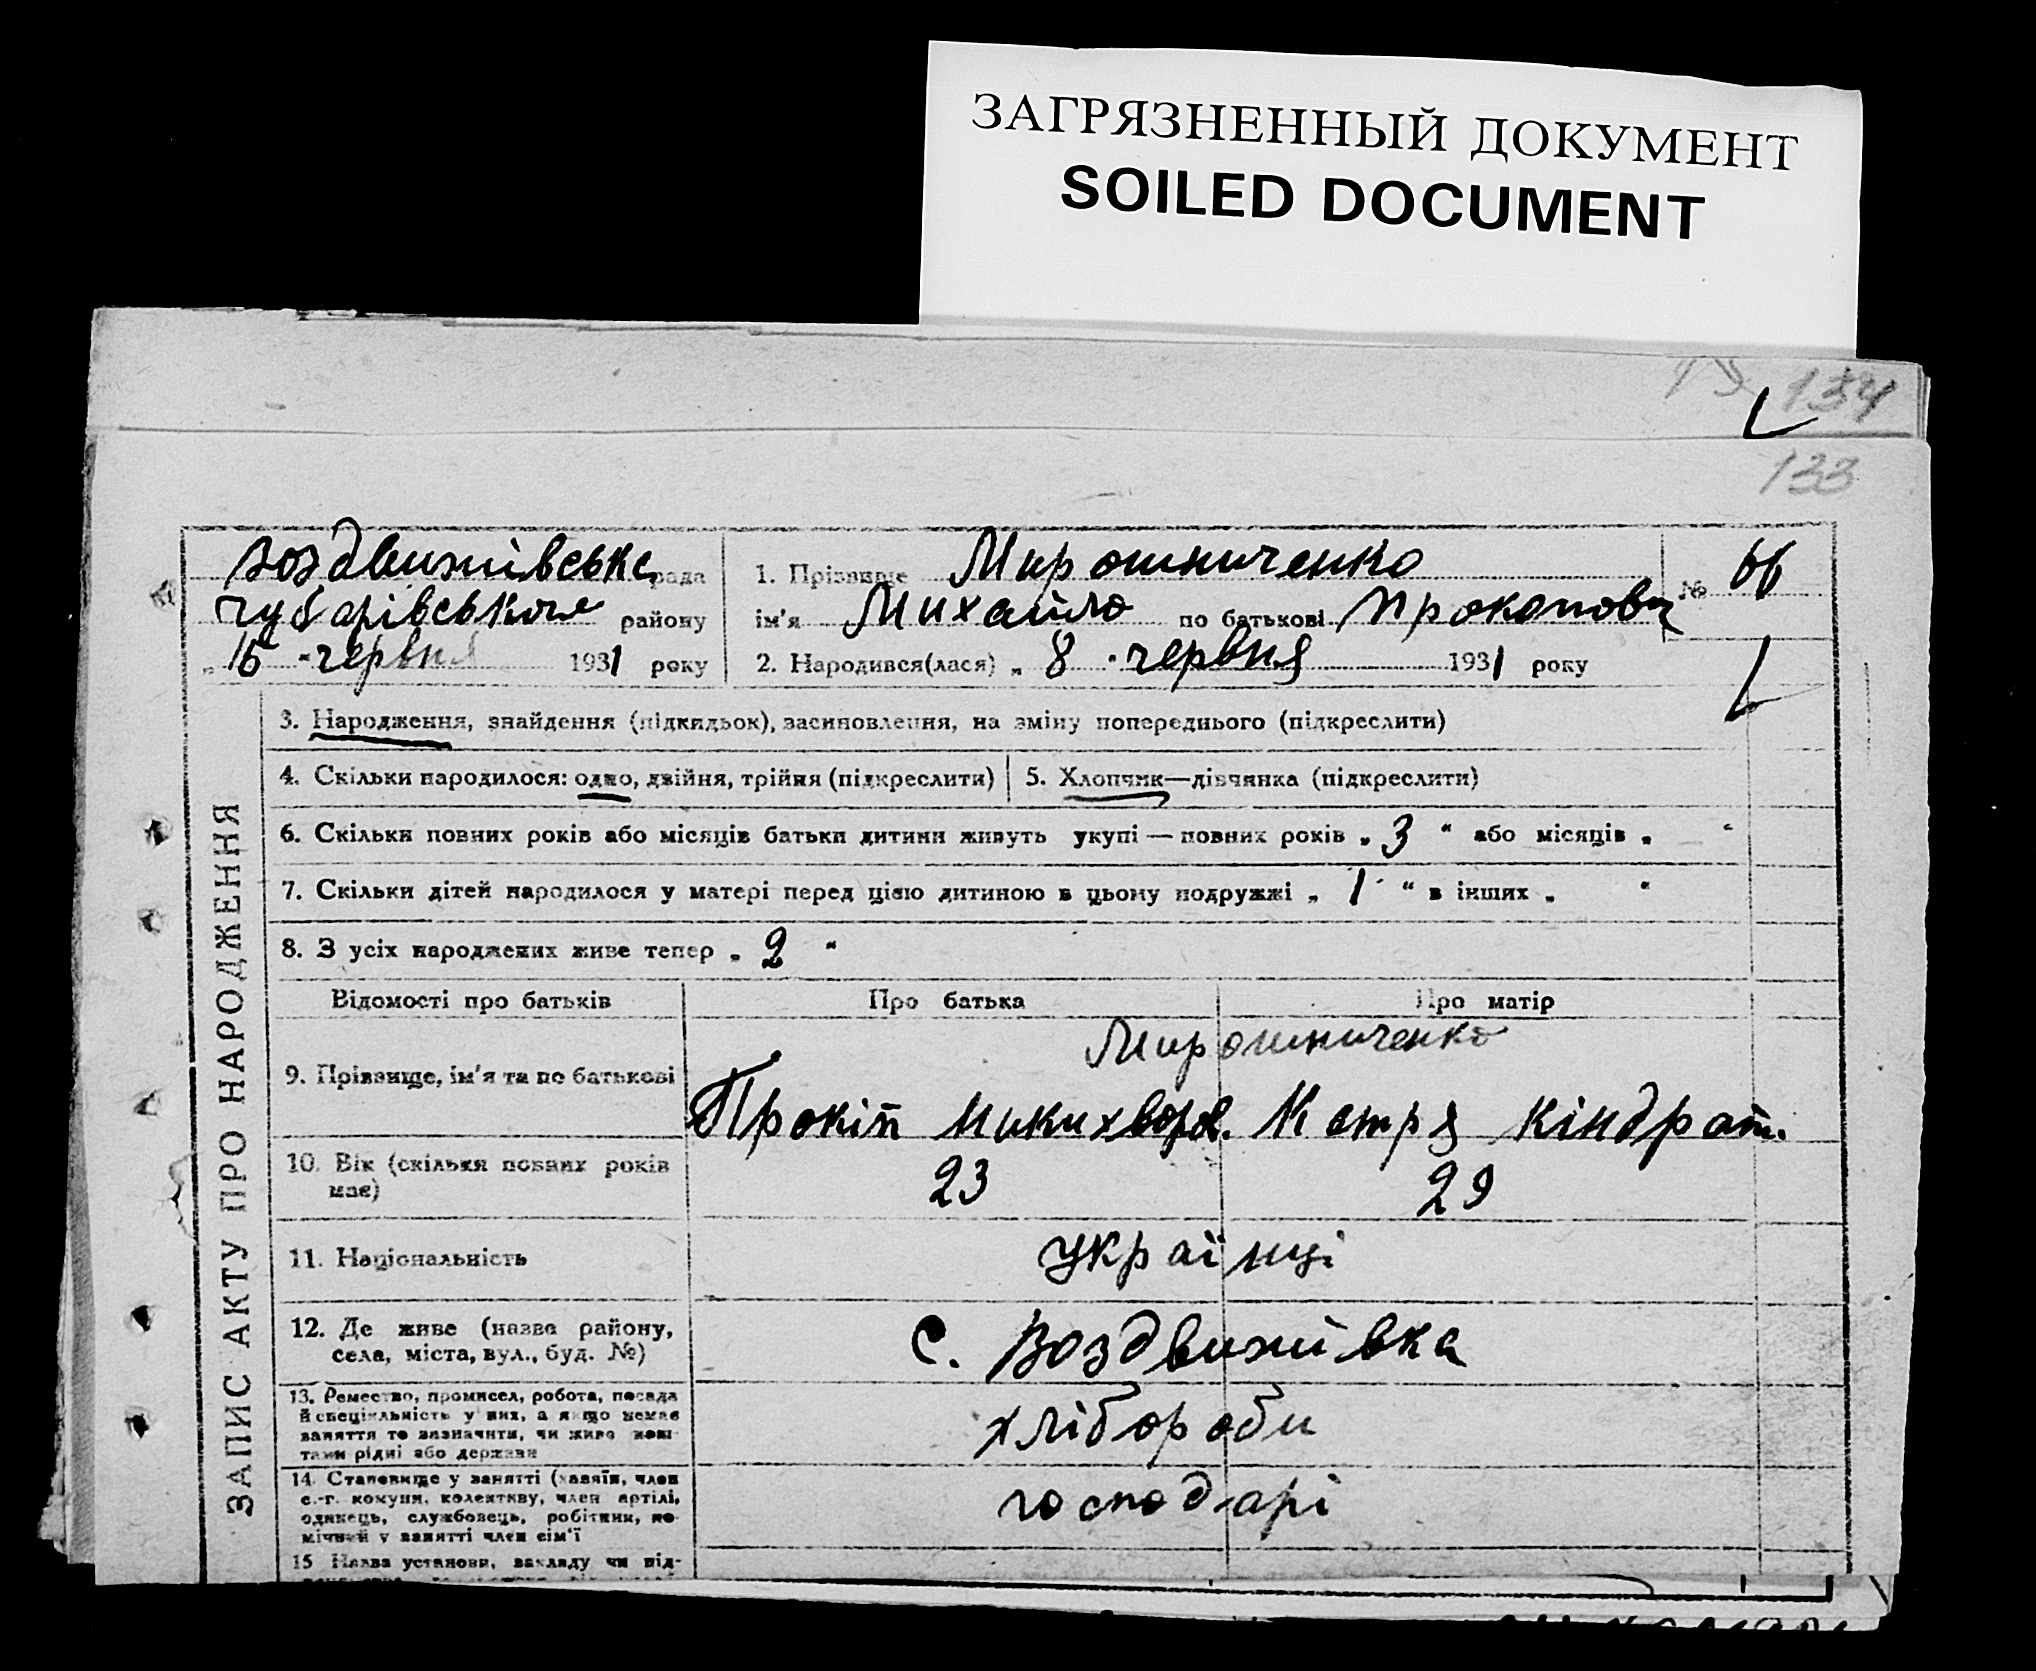 ЗАГРЯЗНЕННЫЙ ДОКУМЕНТ
SOILED DOCUMENT
134
133
Воздвижівська рада
Чубарівського району
„ 15 " червня 1931 року
1. Прізвище Мирошниченко
ім'я Михайло по батькові Прокопович
№ 66
2. Народився(лася) „ 8 " червня 1931 року
ЗАПИС АКТУ ПРО НАРОДЖЕННЯ
3. Народження, знайдення (підкидьок), засиновлення, на зміну попереднього (підкреслити)
4. Скільки народилося: одно, двійня, трійня (підкреслити)
5. Хлопчик—дівчинка (підкреслити)
6. Скільки повних років або місяців батьки дитини живуть укупі — повних років „ 3 " або місяців „ "
7. Скільки дітей народилося у матері перед цією дитиною в цьому подружжі „ 1 " в інших „ "
8. З усіх народжених живе тепер „ 2 "
Відомості про батьків Про батька Про матір
Мирошниченко
9. Прізвище, ім'я та по батькові Прокіп Микихвор. Катря Кіндрат.
10. Вік (скільки повних років
має) 23 29
11. Національність українці
12. Де живе (назва району,
села, міста, вул., буд. №) с. Воздвижівка
13. Ремество, промисел, робота, посада
й спеціяльність у них, а якщо немає
заняття то зазначити, чи живе кош-
тами рідні або держави
хлібороби
14. Становище у занятті (хазяїн, член
с.-г. комуни, колективу, член артілі,
одинець, службовець, робітник, по-
мічний у занятті член сім'ї
господарі
15 Назва установи, закладу чи під-